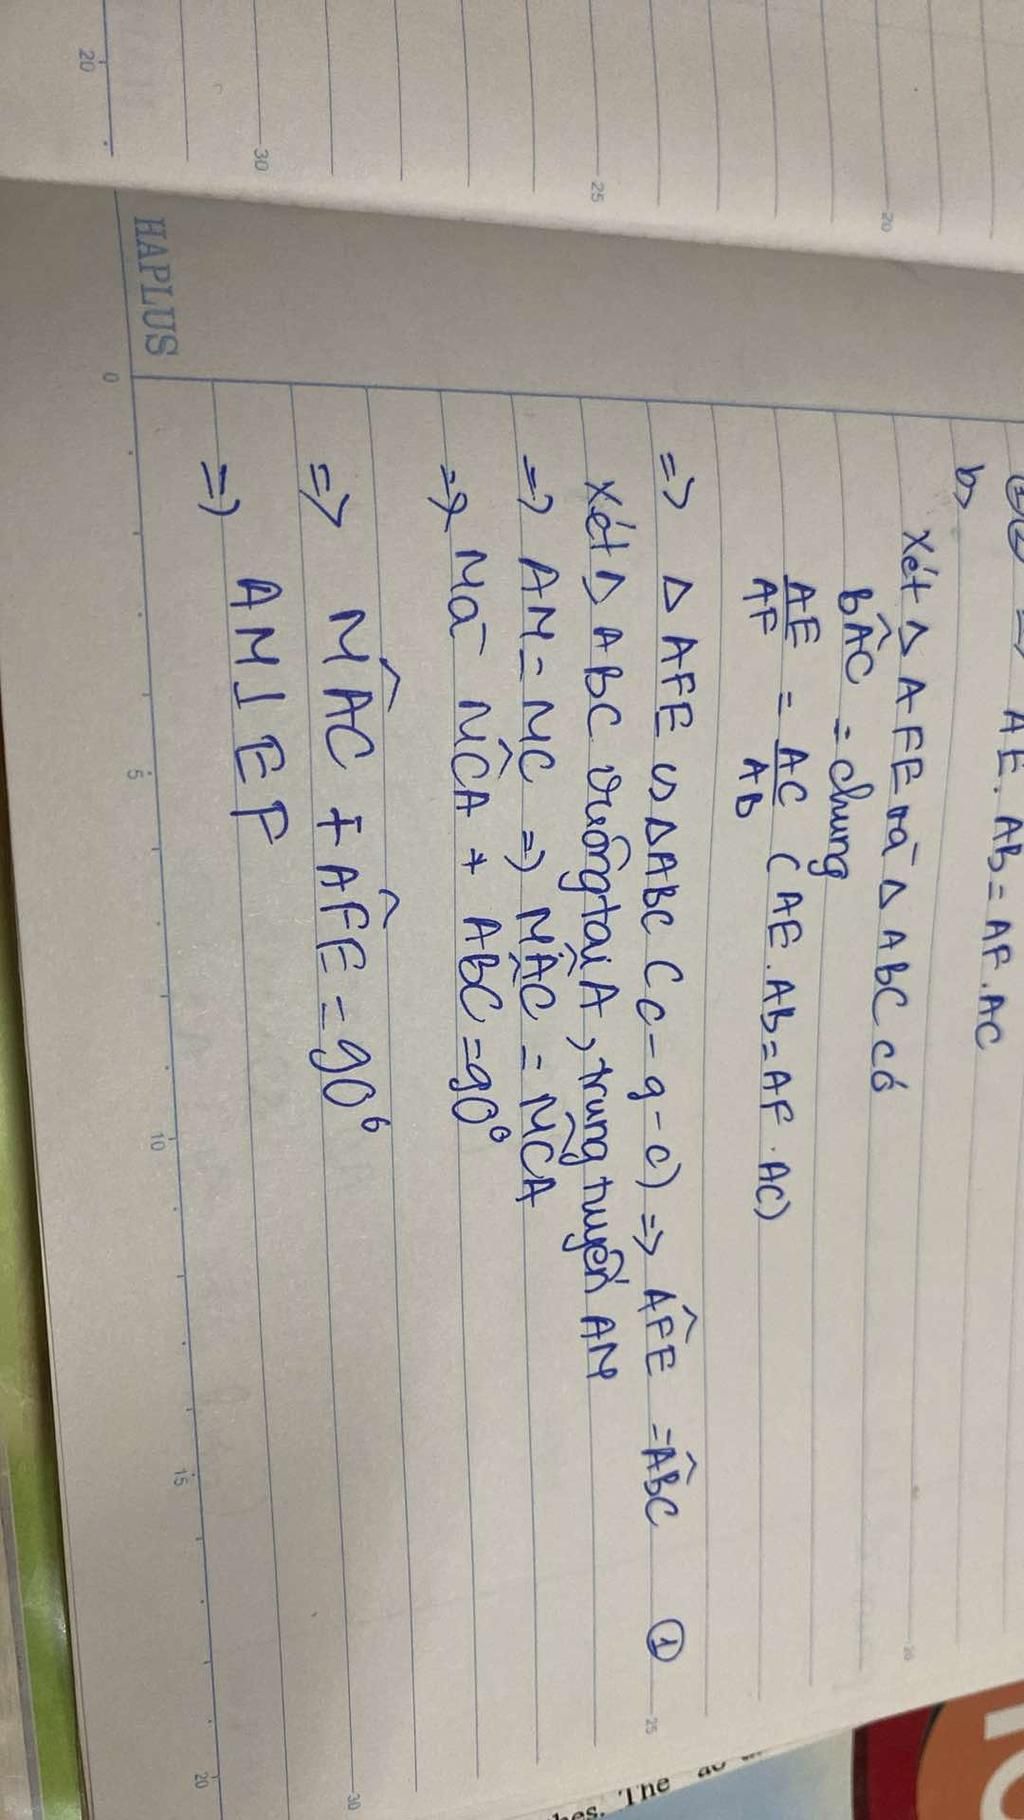 ①② => AE.AB = AF.AC
b)
Xét △ AFE và △ ABC có
BÂC = chung
AE/AF = AC/AB (AE.AB = AF.AC)
=> △ AFE ∽ △ABC (c-g-c) => AF̂E = AB̂C ①
Xét △ ABC vuông tại A, trung tuyến AM
=> AM = MC => MÂC = MĈA
=> Mà MĈA + ABC = 90°
=> MÂC + AF̂E = 90°
=> AM ⊥ EF
HAPLUS
0 5 10 15 20
20
30
25
20
25
30
hes. The